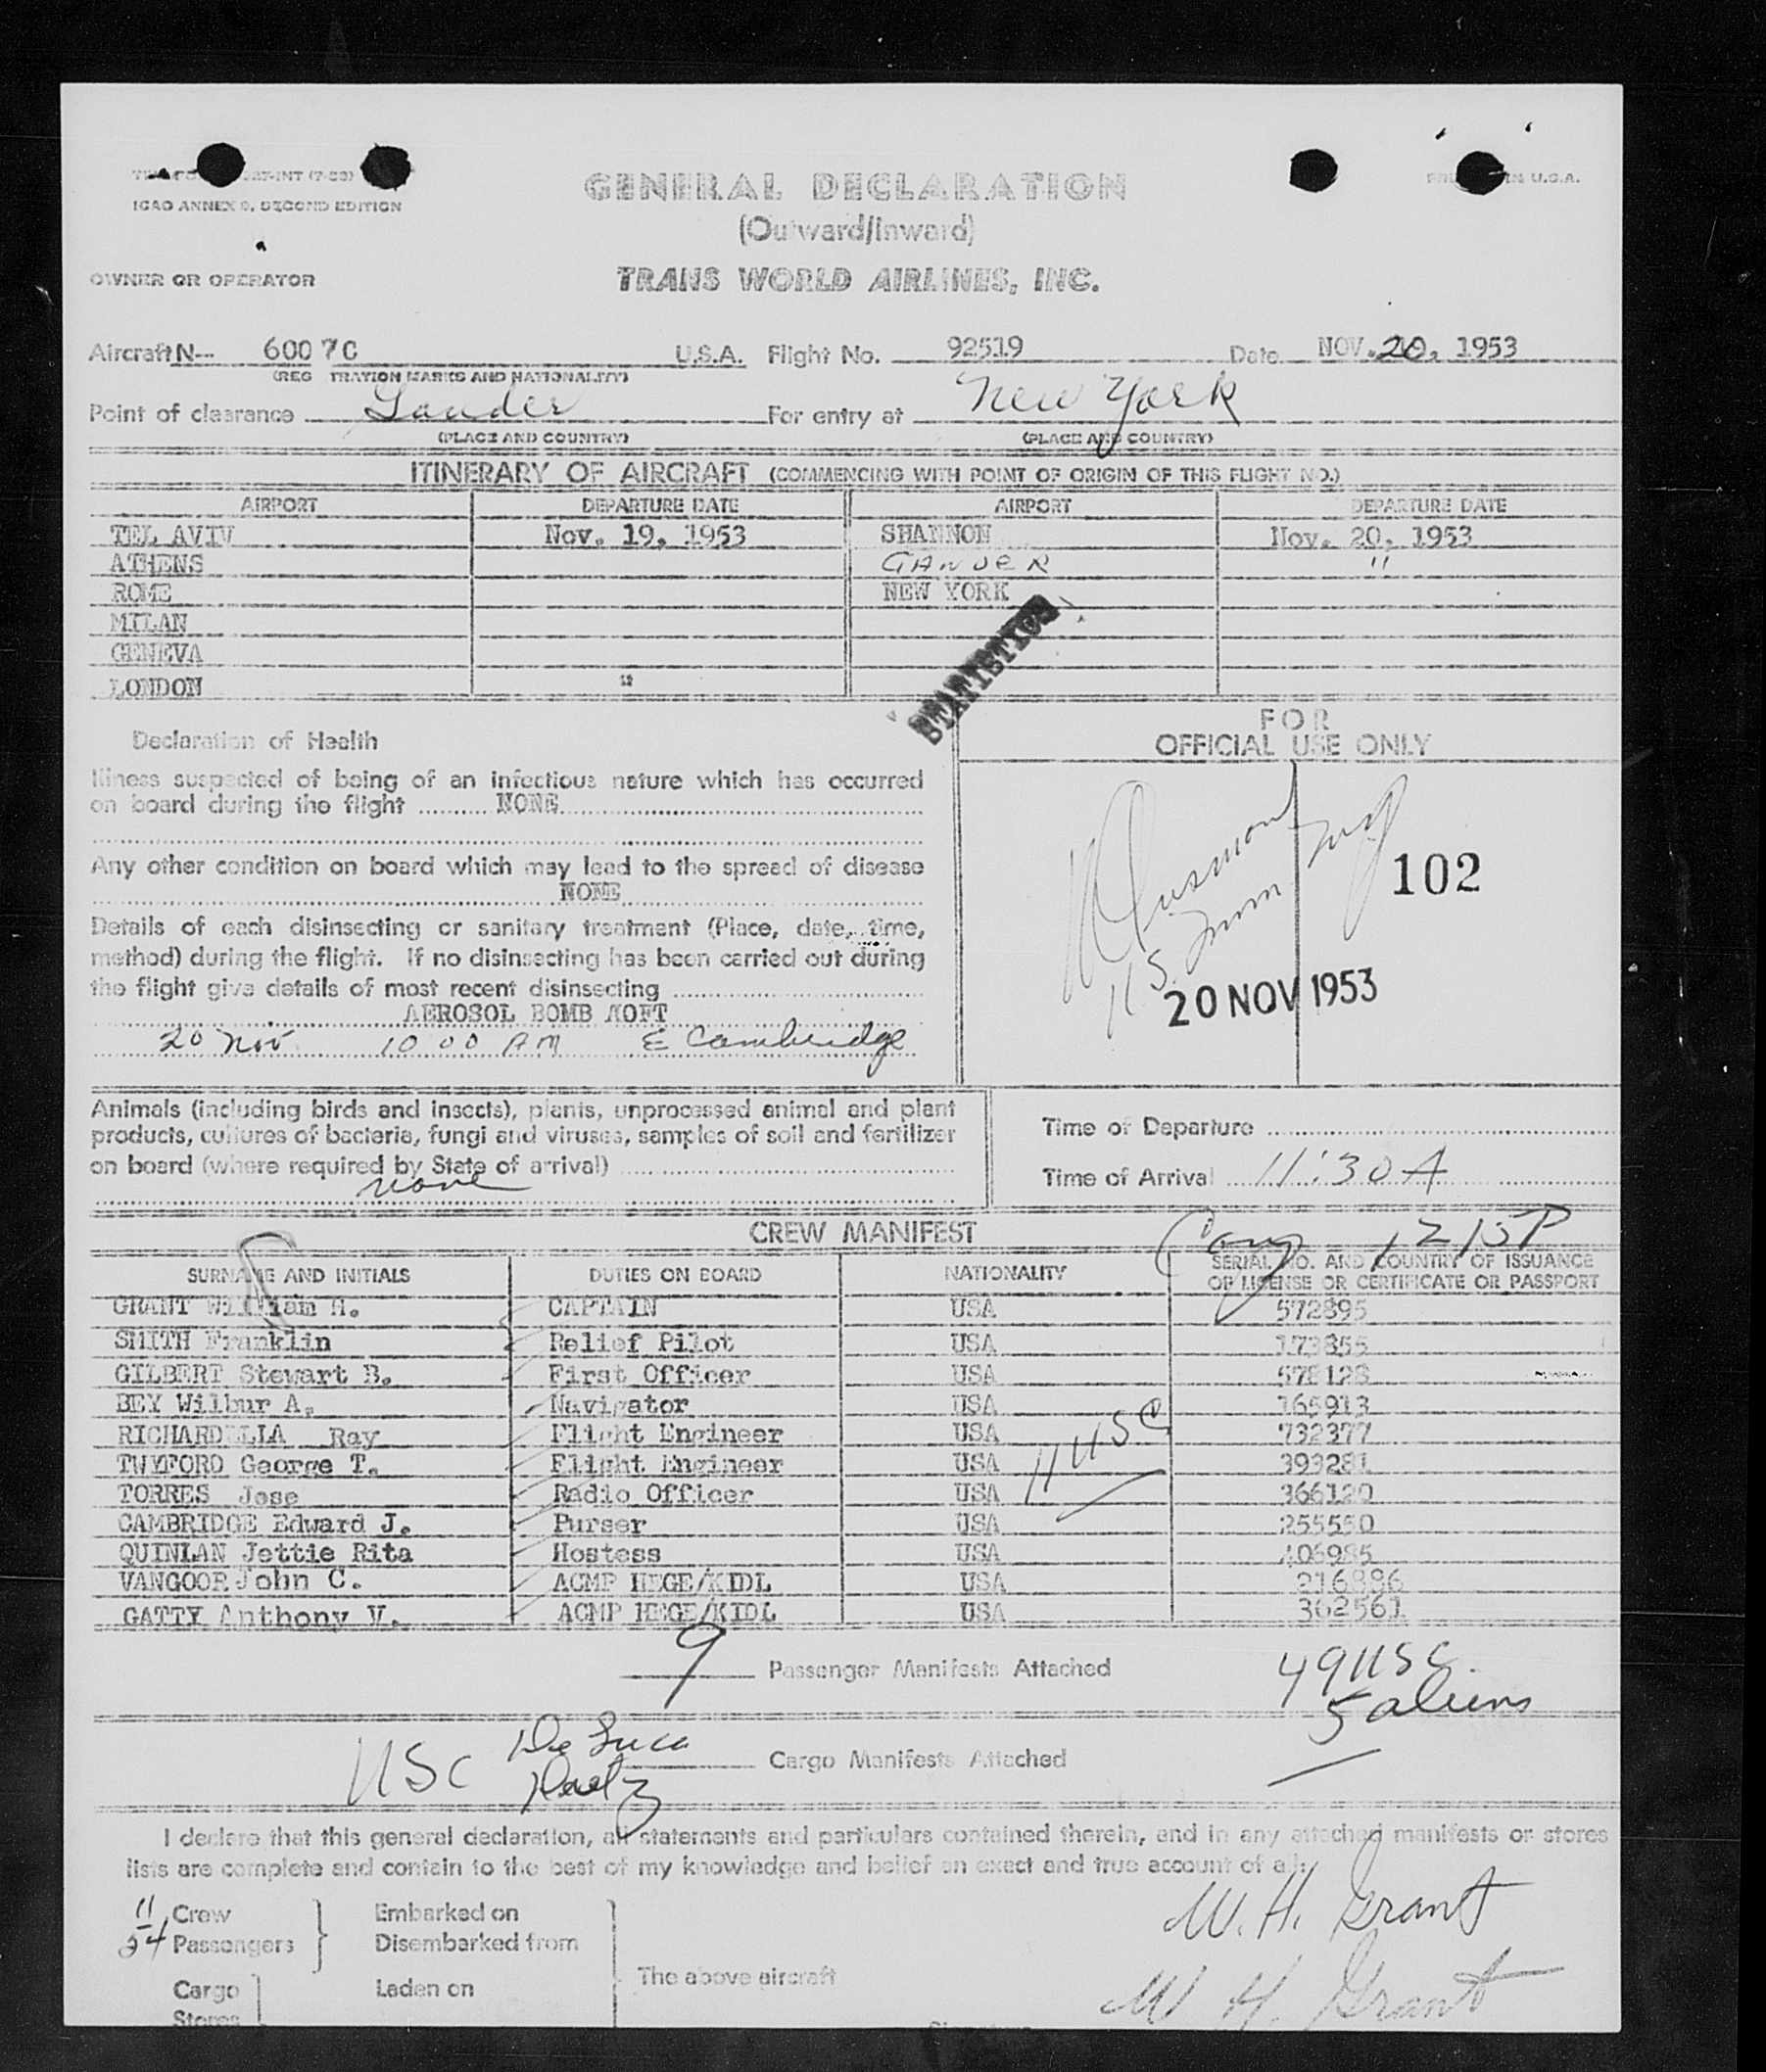 ICAO ANNEX 9, SECOND EDITION
GENERAL DECLARATION
(Outward/Inward)
OWNER OR OPERATOR TRANS WORLD AIRLINES, INC.
Aircraft N-- 6007C U.S.A. Flight No. 92519 Date NOV. 20, 1953
(REGISTRATION MARKS AND NATIONALITY)
Point of clearance For entry at New York
(PLACE AND COUNTRY) (PLACE AND COUNTRY)
ITINERARY OF AIRCRAFT (COMMENCING WITH POINT OF ORIGIN OF THIS FLIGHT NO.)
AIRPORT DEPARTURE DATE AIRPORT DEPARTURE DATE
TEL AVIV Nov. 19, 1953 SHANNON Nov. 20, 1953
ATHENS GANDER "
ROME NEW YORK
MILAN
GENEVA
LONDON "
STATISTICS
Declaration of Health
Illness suspected of being of an infectious nature which has occurred
on board during the flight NONE
Any other condition on board which may lead to the spread of disease
NONE
Details of each disinsecting or sanitary treatment (Place, date, time,
method) during the flight. If no disinsecting has been carried out during
the flight give details of most recent disinsecting
AEROSOL BOMB
20 Nov 10 00 AM E Cambridge
FOR
OFFICIAL USE ONLY
102
20 NOV 1953
Animals (including birds and insects), plants, unprocessed animal and plant
products, cultures of bacteria, fungi and viruses, samples of soil and fertilizer
on board (where required by State of arrival)
none
Time of Departure
Time of Arrival 11:30 A
CREW MANIFEST
1215P
SURNAME AND INITIALS DUTIES ON BOARD NATIONALITY SERIAL NO. AND COUNTRY OF ISSUANCE
OF LICENSE OR CERTIFICATE OR PASSPORT
GRANT William H. CAPTAIN USA 572895
SMITH Franklin Relief Pilot USA 173855
GILBERT Stewart B. First Officer USA 578128
BEY Wilbur A. Navigator USA 165913
RICHARDELLA Ray Flight Engineer USA 732377
TWYFORD George T. Flight Engineer USA 393281
TORRES Jose Radio Officer USA 366120
CAMBRIDGE Edward J. Purser USA 255550
QUINLAN Jettie Rita Hostess USA 406985
VANGOOR John C. ACMP HEGE/KIDL USA 216886
GATTY Anthony V. ACMP HEGE/KIDL USA 362561
11 USC
9 Passenger Manifests Attached
49 USC
5 aliens
USC De Luca
Cargo Manifests Attached
I declare that this general declaration, all statements and particulars contained therein, and in any attached manifests or stores
lists are complete and contain to the best of my knowledge and belief an exact and true account of all:
11 Crew Embarked on
54 Passengers Disembarked from
W. H. Grant
The above aircraft
Cargo Laden on
W. H. Grant
Stores